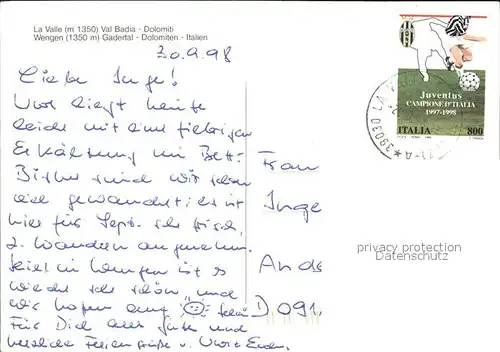 La Valle (m 1350) Val Badia - Dolomiti
Wengen (1350 m) Gadertal - Dolomiten - Italien
30.9.98
Liebe Inge!
Uwe liegt heute
leider mit einer fiebrigen
Erkältung im Bett.
Bisher sind wir schon
viel gewandert; es ist
hier für Sept. sehr frisch,
z. Wandern angenehm.
hier in Wengen ist es
wieder sehr schön und
wir hoffen auf
Für Dich alles Gute und
herzliche Feriengrüße v. Uwe +
Frau
Inge
D 091
Juventus
CAMPIONE D'ITALIA
1997-1998
ITALIA 800
39030 LA
privacy protection
Datenschutz